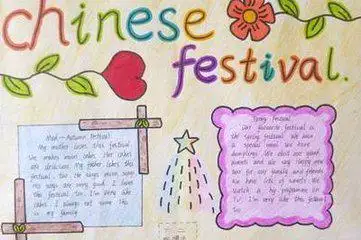 chinese
festival.
Mid-Autumn Festival
My mother likes this festival
She makes moon cakes. Her cakes
are delicious. My father likes this
festival, too. He sings moon songs
His songs are very good. I like
this festival, too. I'm very like
cakes. I always eat some this
in my family
Spring Festival
Our favourite festival is
the Spring Festival. We have
a special meal. We have
dumplings. We visit our good
friends and we say happy new
year for our family and friends
We have lots of sweets. We
watch a programme on
TV. I'm very like this festival
too